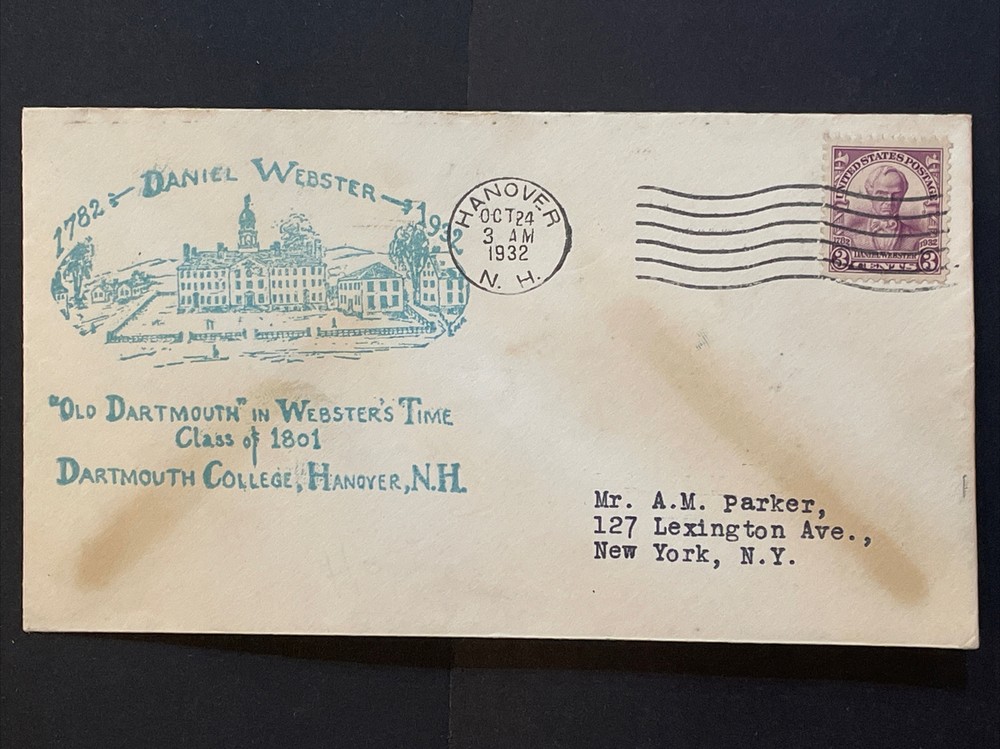 1782 DANIEL WEBSTER 1932
"OLD DARTMOUTH" IN WEBSTER'S TIME
Class of 1801
DARTMOUTH COLLEGE, HANOVER, N.H.
HANOVER
OCT 24
3 AM
1932
N. H.
UNITED STATES POSTAGE
1782 1932
3 DANIEL WEBSTER 3
CENTS
Mr. A.M. Parker,
127 Lexington Ave.,
New York, N.Y.